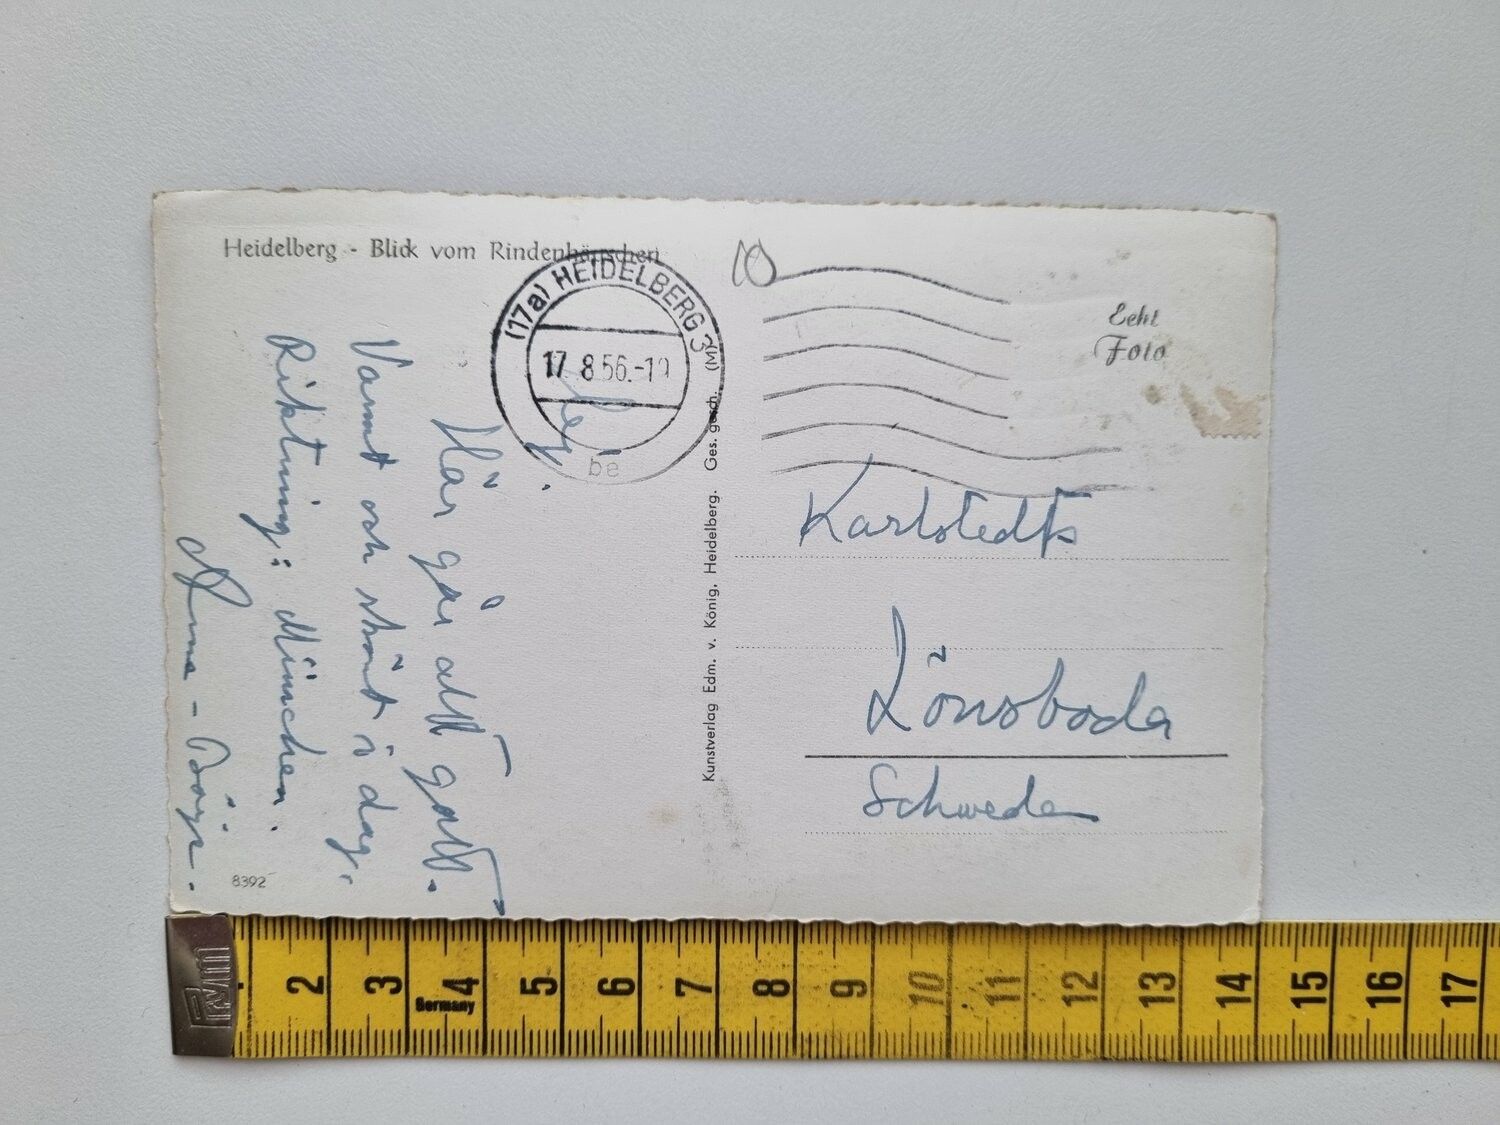 Heidelberg - Blick vom Rindenhäuschen
(17a) HEIDELBERG 3
17.8.56.-19
be
Hej.
Här går allt gott.
Varmt och skönt i dag.
Riktning: München.
8392
Kunstverlag Edm. v. König, Heidelberg. Ges. gesch. (M)
Echt
Foto
Karlstedts
Lönsboda
Schweden
Prym
2 3 4 5 6 7 8 9 10 11 12 13 14 15 16 17
Germany